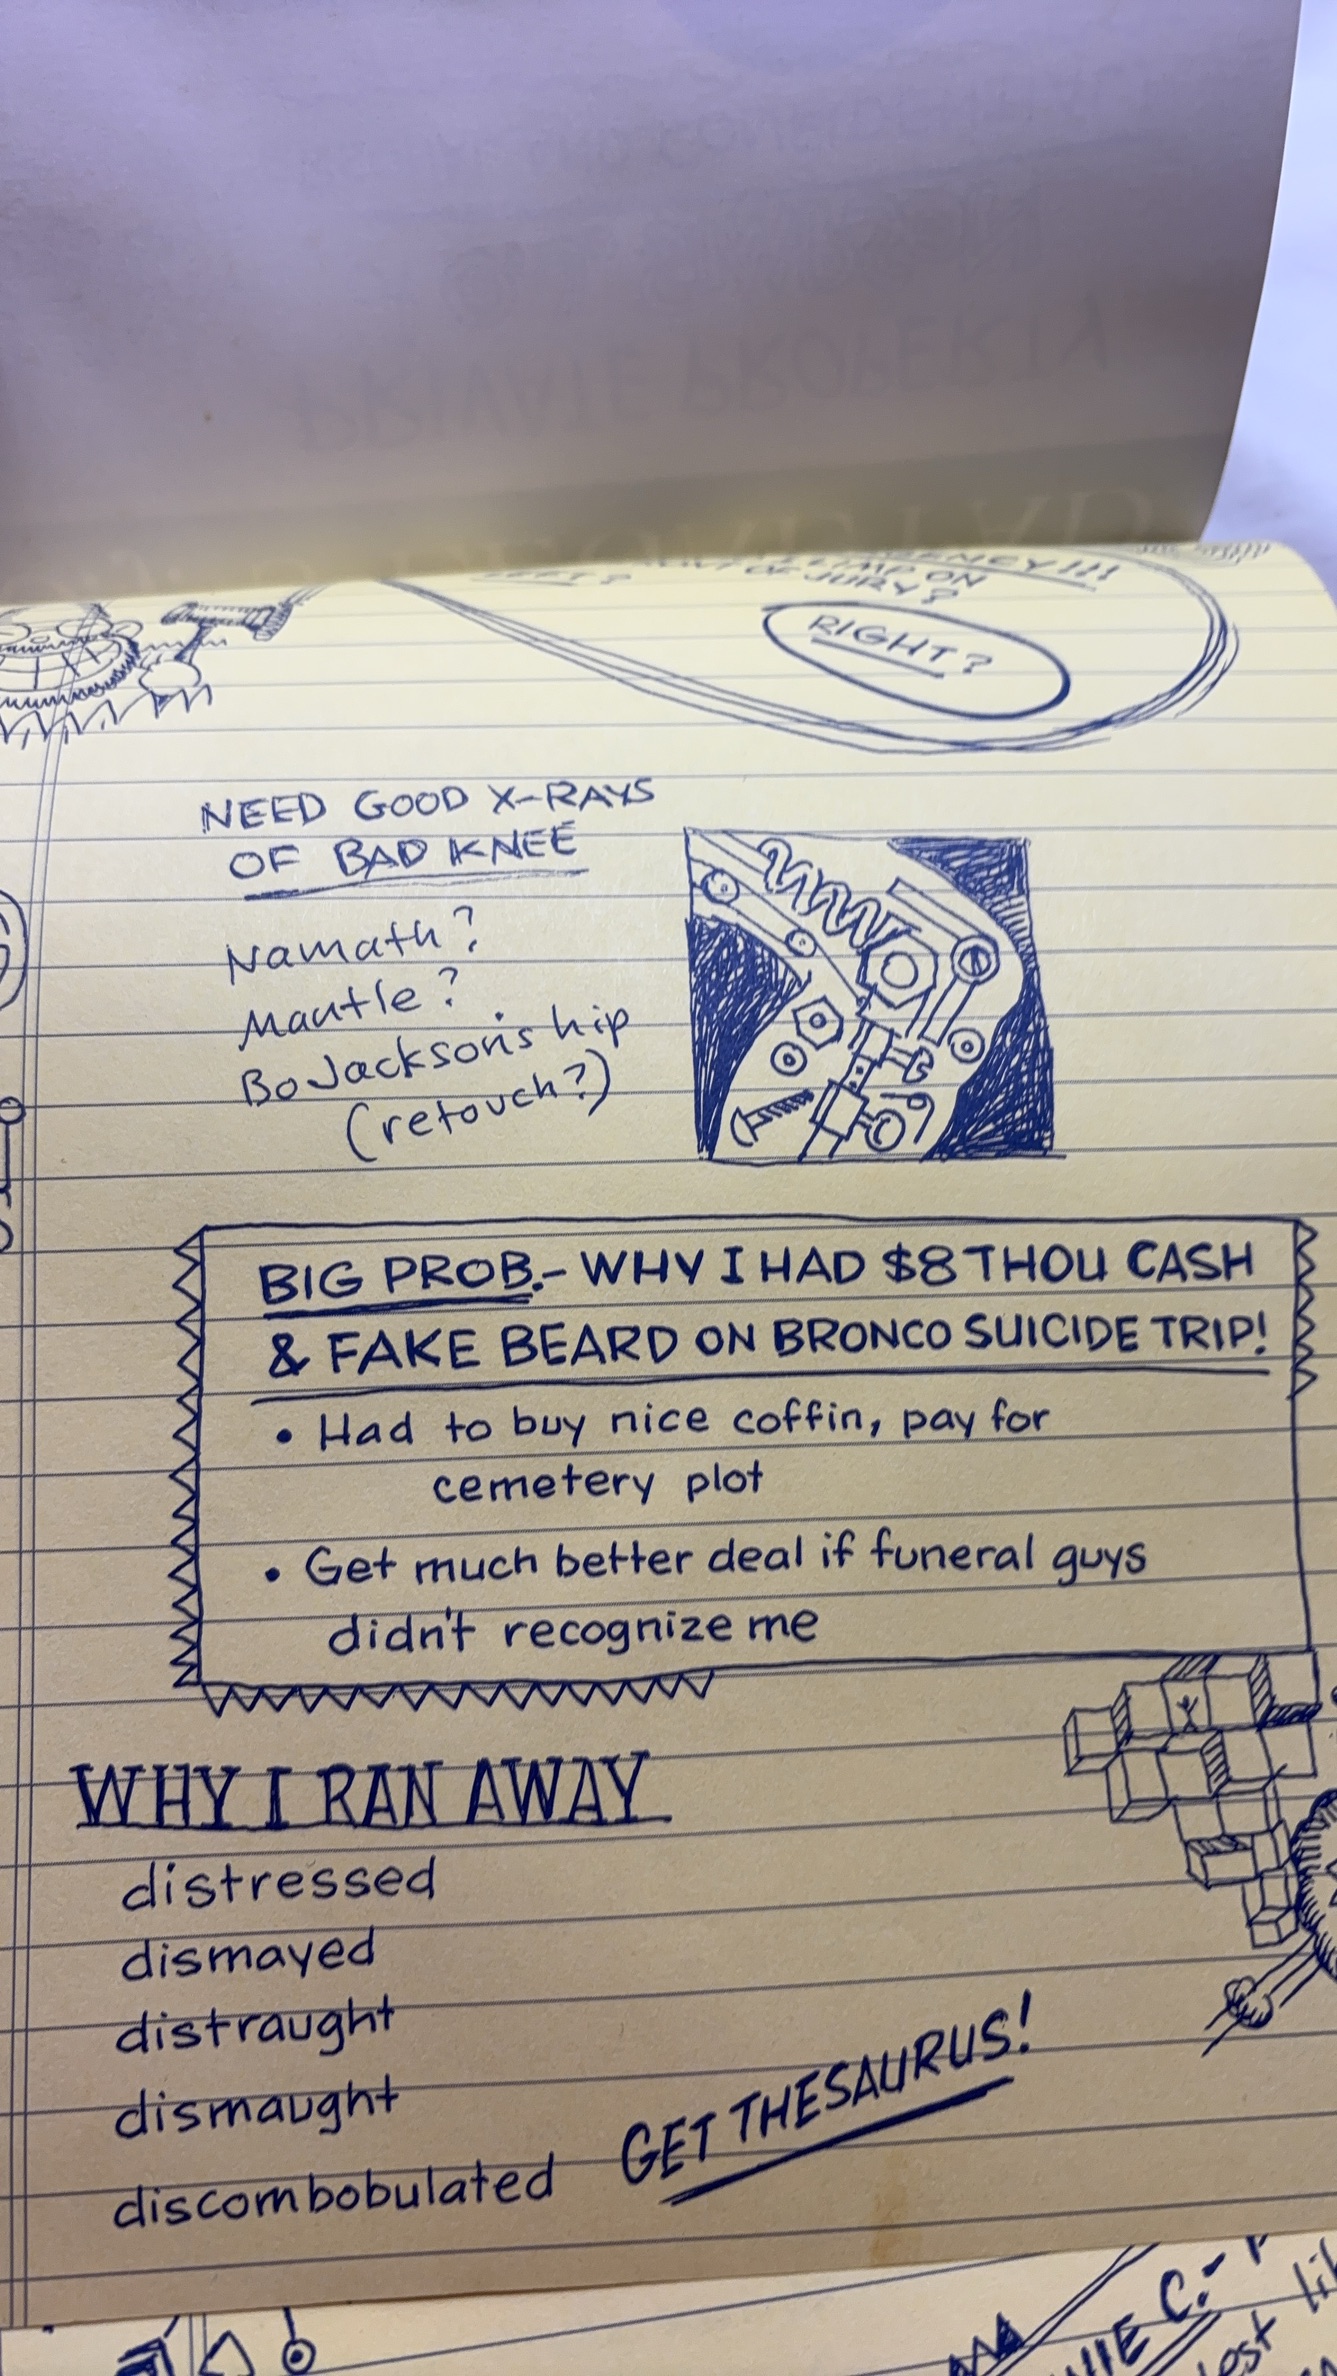 PRIVATE PROPERTY
LEGAL PAD
LEFT?
LIMP ON
OF JURY?
RIGHT?
NEED GOOD X-RAYS
OF BAD KNEE
Namath?
Mantle?
Bo Jackson's hip
(retouch?)
BIG PROB.- WHY I HAD $8 THOU CASH
& FAKE BEARD ON BRONCO SUICIDE TRIP!
• Had to buy nice coffin, pay for
cemetery plot
• Get much better deal if funeral guys
didn't recognize me
WHY I RAN AWAY
distressed
dismayed
distraught
dismaught
discombobulated
GET THESAURUS!